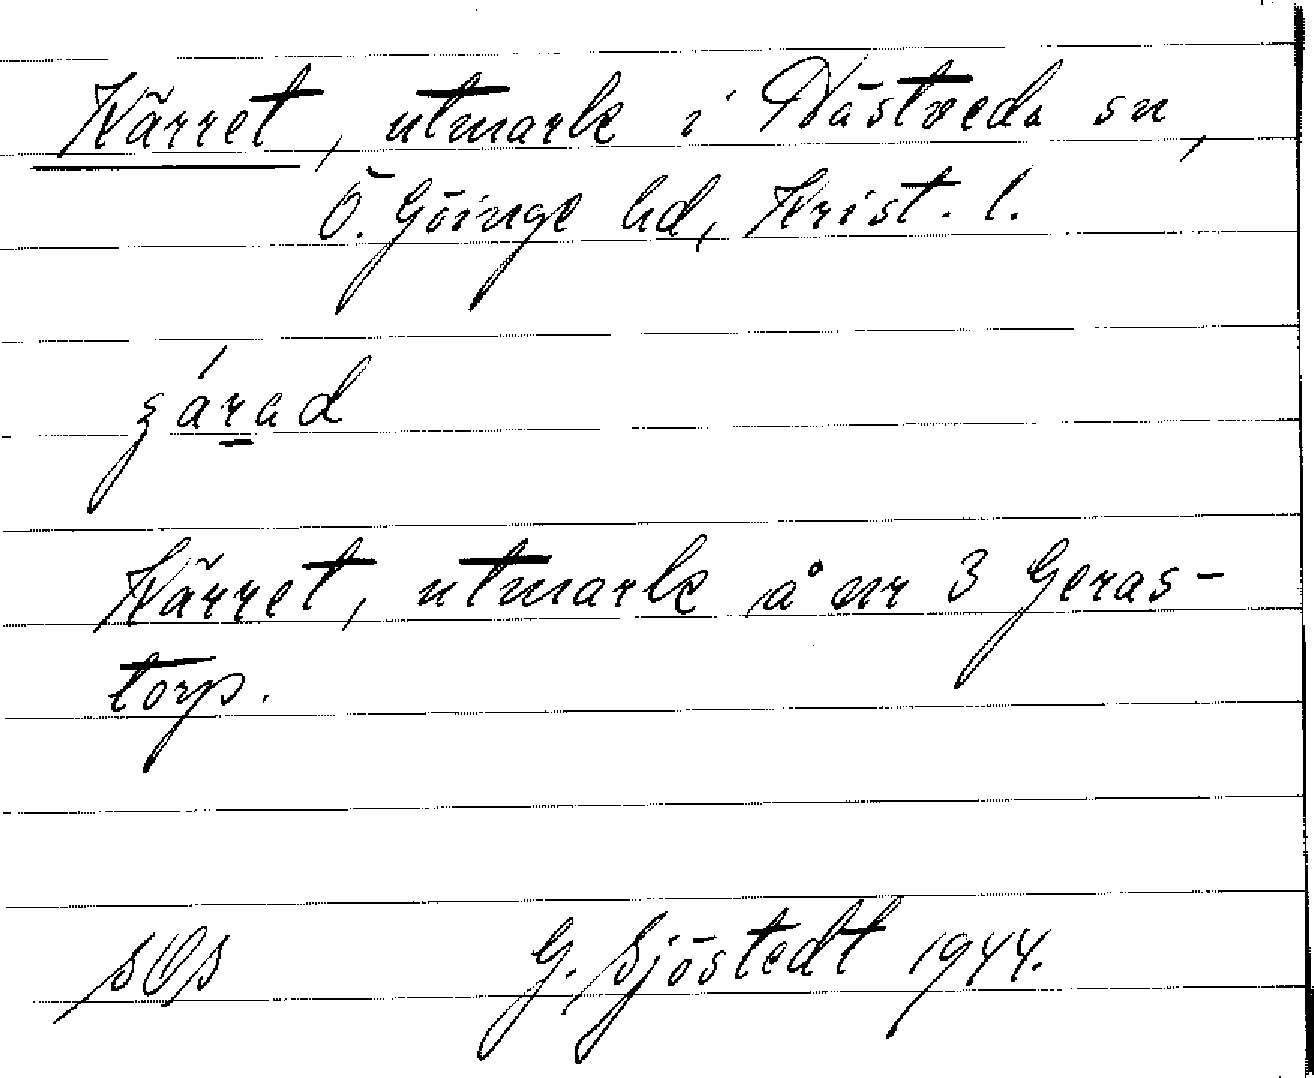 Kärret, utmark i Nåstveda sn,
Ö. Göinge hd, Krist. l.
Kärret, utmark å nr 3 Geras-
torp.
G. Sjöstedt 1944.